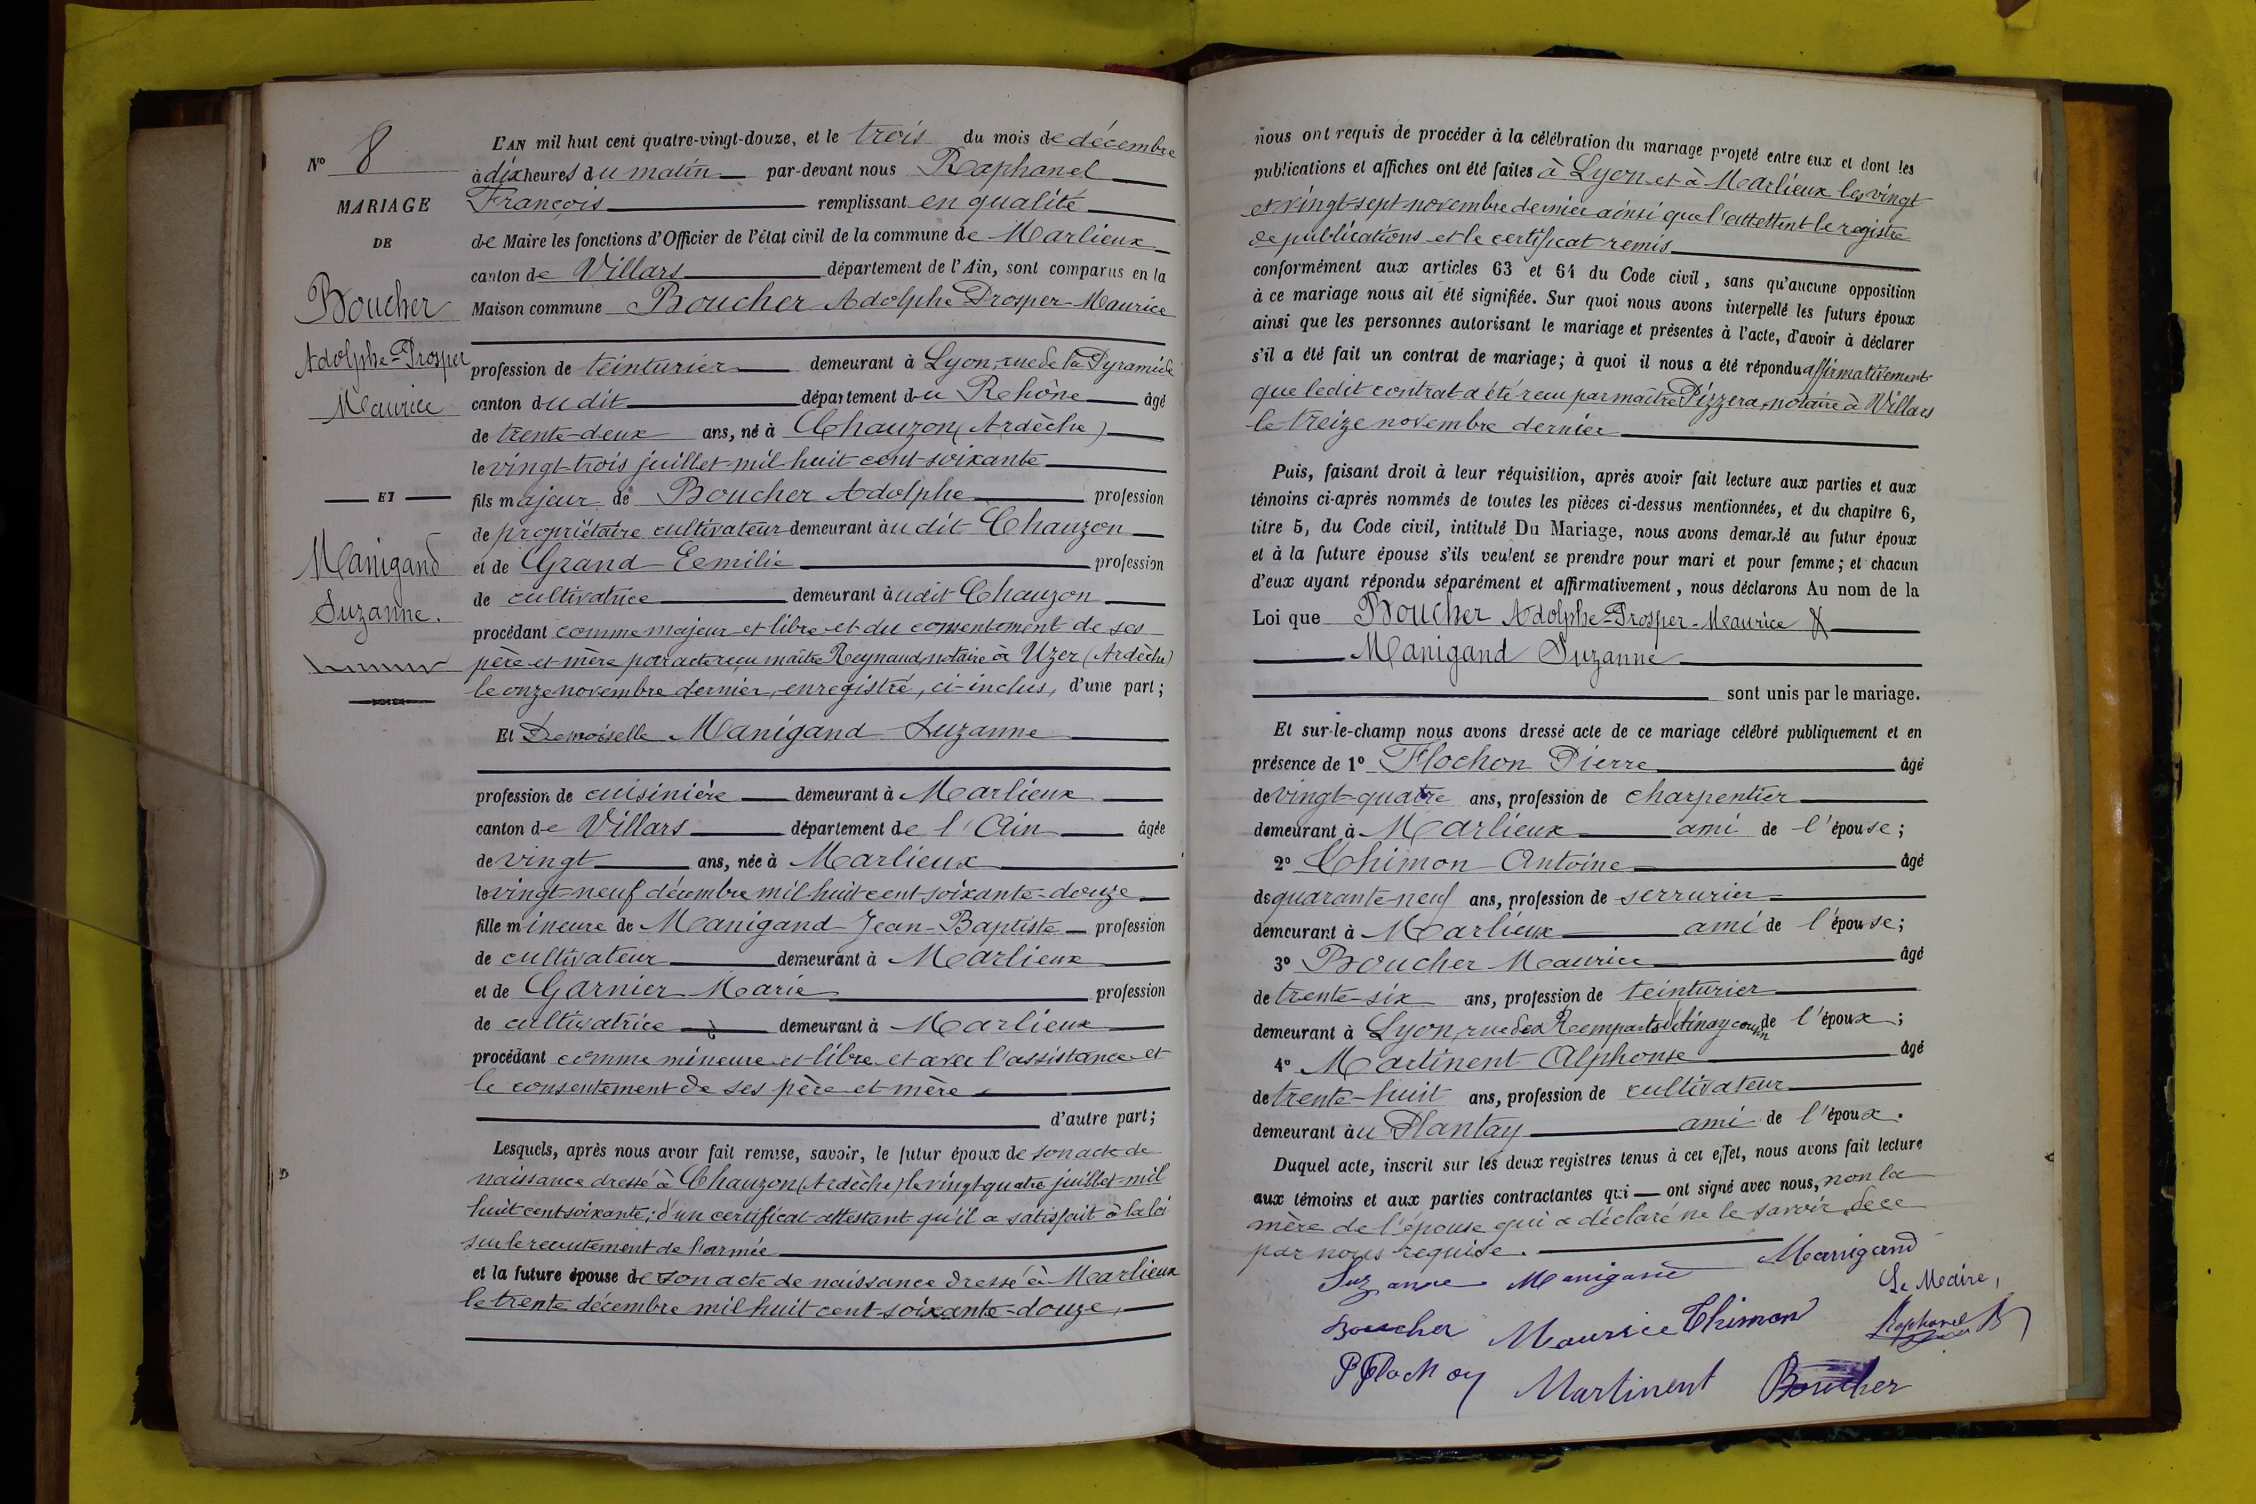 N° 8
MARIAGE
DE
Boucher
Adolphe-Prosper
Maurice
ET
Manigand
Suzanne.
L'AN mil huit cent quatre-vingt-douze, et le trois du mois de décembre
à dix heures du matin par-devant nous Raphanel
François remplissant en qualité
de Maire les fonctions d'Officier de l'état civil de la commune de Marlieux
canton de Villars département de l'Ain, sont comparus en la
Maison commune Boucher Adolphe Prosper-Maurice
profession de teinturier demeurant à Lyon, rue de la Pyramide
canton dudit département du Rehône âgé
de trente-deux ans, né à Chauzon (Ardèche)
le vingt-trois juillet mil huit cent soixante
fils majeur de Boucher Adolphe profession
de propriétaire cultivateur demeurant àudit Chauzon
et de Grand Eemilie profession
de cultivatrice demeurant àudit Chauzon
procédant comme majeur et libre et du consentement de ses
père et mère par acte reçu maître Reynaud, notaire à Uzer (Ardèche)
le onze novembre dernier, enregistré, ci-inclus, d'une part;
Et Demoiselle Manigand Suzanne
profession de cuisinière demeurant à Marlieux
canton de Villars département de l'Ain âgée
de vingt ans, née à Marlieux
le vingt-neuf décembre mil huit cent soixante-douze
fille mineure de Manigand Jean-Baptiste profession
de cultivateur demeurant à Marlieux
et de Garnier Marie profession
de cultivatrice demeurant à Marlieux
procédant comme mineure et libre et avec l'assistance et
le consentement de ses père et mère
d'autre part;
Lesquels, après nous avoir fait remise, savoir, le futur époux de son acte de
naissance dressé à Chauzon (Ardèche) le vingt-quatre juillet mil
huit cent soixante; d'un certificat attestant qu'il a satisfait à la loi
sur le recrutement de l'armée
et la future épouse de son acte de naissance dressé à Marlieux
le trente décembre mil huit cent soixante-douze,
nous ont requis de procéder à la célébration du mariage projeté entre eux et dont les
publications et affiches ont été faites à Lyon et à Marlieux les vingt
et vingt-sept novembre dernier ainsi que l'attestent le registre
de publications et le certificat remis
conformément aux articles 63 et 64 du Code civil, sans qu'aucune opposition
à ce mariage nous ait été signifiée. Sur quoi nous avons interpellé les futurs époux
ainsi que les personnes autorisant le mariage et présentes à l'acte, d'avoir à déclarer
s'il a été fait un contrat de mariage; à quoi il nous a été répondu affirmativement
que ledit contrat a été reçu par maître Pizzera, notaire à Villars
le treize novembre dernier
Puis, faisant droit à leur réquisition, après avoir fait lecture aux parties et aux
témoins ci-après nommés de toutes les pièces ci-dessus mentionnées, et du chapitre 6,
titre 5, du Code civil, intitulé Du Mariage, nous avons demandé au futur époux
et à la future épouse s'ils veulent se prendre pour mari et pour femme; et chacun
d'eux ayant répondu séparément et affirmativement, nous déclarons Au nom de la
Loi que Boucher Adolphe-Prosper-Maurice &
Manigand Suzanne
sont unis par le mariage.
Et sur-le-champ nous avons dressé acte de ce mariage célébré publiquement et en
présence de 1° Flochon Pierre âgé
de vingt-quatre ans, profession de charpentier
demeurant à Marlieux ami de l'épouse;
2° Thimon Antoine âgé
de quarante-neuf ans, profession de serrurier
demeurant à Marlieux ami de l'épouse;
3° Boucher Maurice âgé
de trente-six ans, profession de teinturier
demeurant à Lyon, rue des Remparts d'Ainay cousin de l'époux;
4° Martinent Alphonse âgé
de trente-huit ans, profession de cultivateur
demeurant àu Plantay ami de l'époux.
Duquel acte, inscrit sur les deux registres tenus à cet effet, nous avons fait lecture
aux témoins et aux parties contractantes qui ont signé avec nous, non la
mère de l'épouse qui a déclaré ne le savoir, de ce
par nous requise.
Suzanne Manigand Manigand
Le Maire,
Boucher Maurice Thimon Raphanel
P Flochon Martinent Boucher